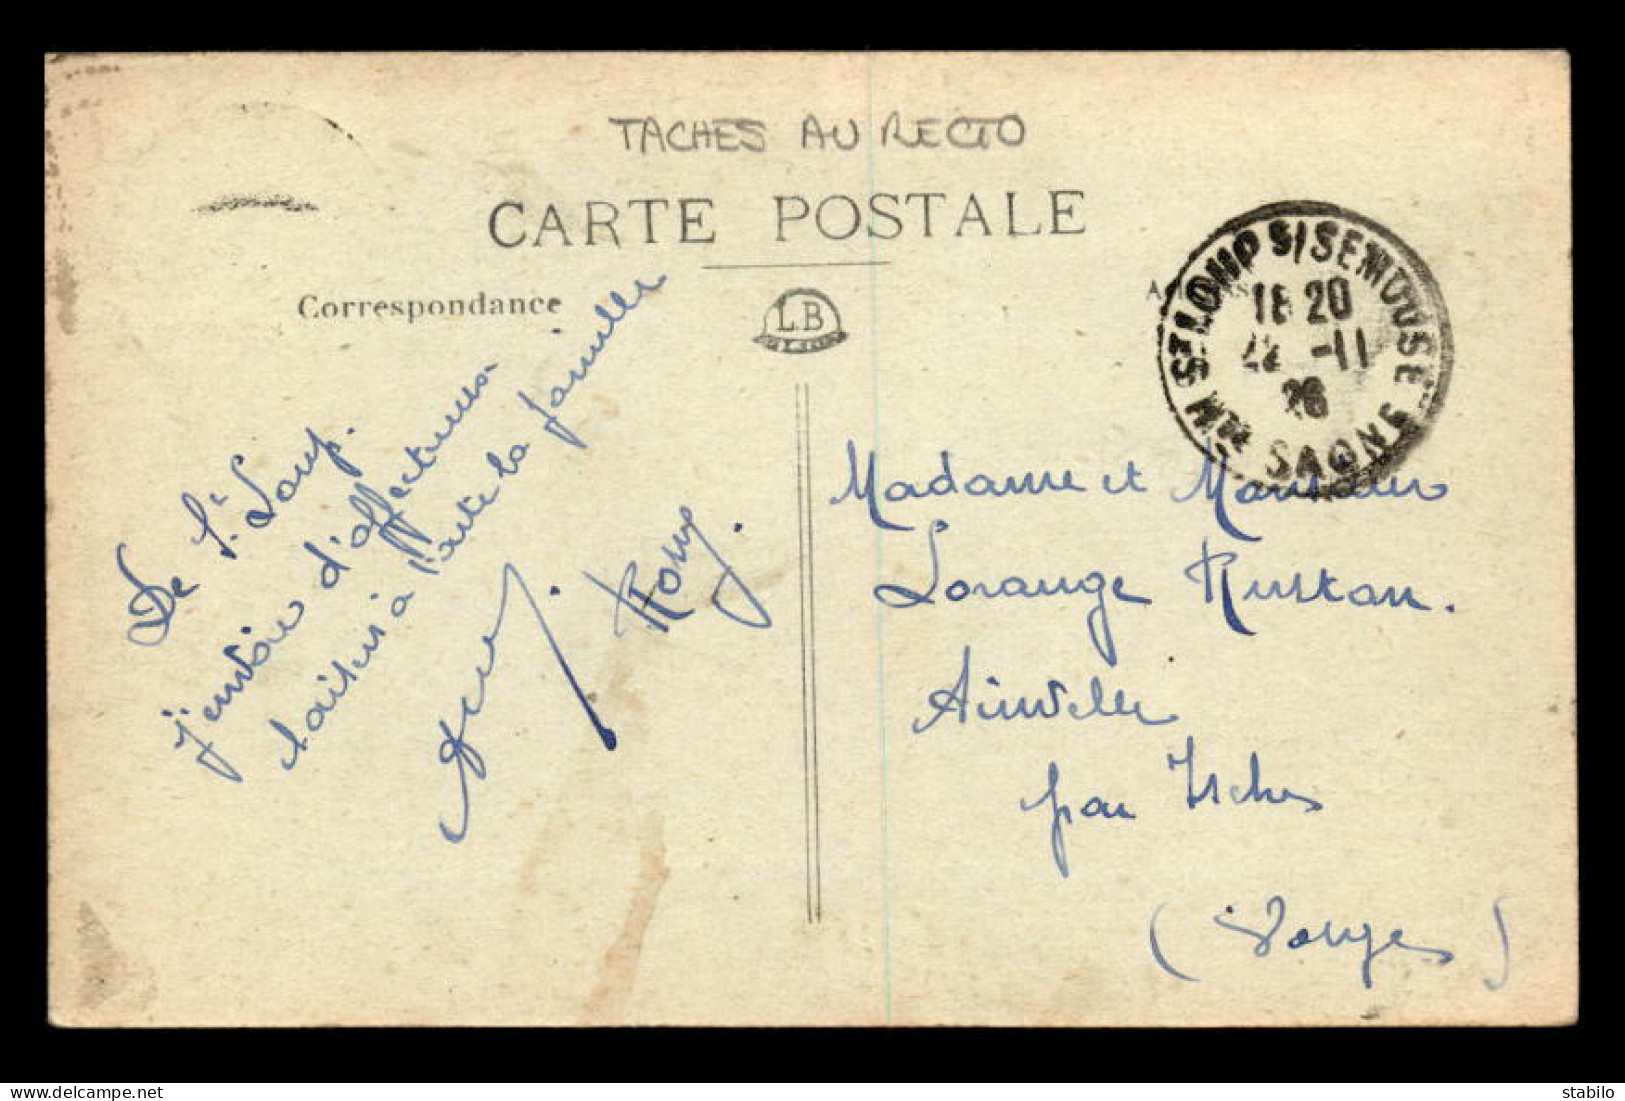 TACHES AU RECTO
CARTE POSTALE
Correspondance
LB
ST LOUP S/SEMOUSE
18 20
22 -11
26
HTE SAONE
De St. Loup.
j'envoie d'affectueux
baisers à toute la famille
Rosy.
Madame et Monsieur
Lorange
Ainvelle
par Isches
(Vosges)
delcampe.net
stabilo